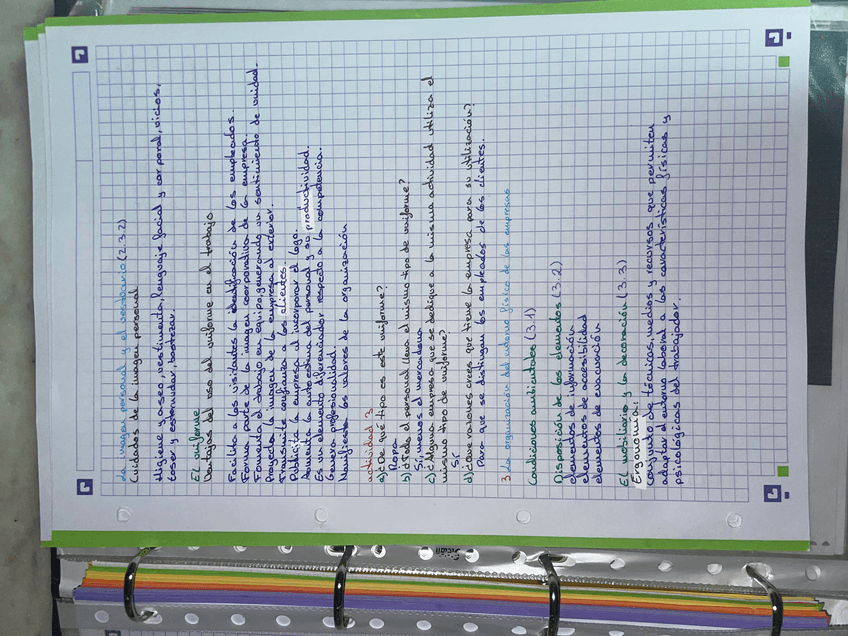 La imagen personal y el vestuario (2.3.2)
Cuidados de la imagen personal
Higiene y aseo, vestimenta, lenguaje facial y corporal, vicios,
toser y estornudar, bostezar.
El uniforme
Ventajas del uso del uniforme en el trabajo
Facilita a los visitantes la identificación de los empleados.
Forma parte de la imagen coorporativa de la empresa.
Fomenta el trabajo en equipo, generando un sentimiento de unidad.
Proyecta la imagen de la empresa al exterior.
Transmite confianza a los clientes.
Publicita la empresa al incorporar el logo.
Aumenta la autoestima del personal y su productividad.
Es un elemento diferenciador respecto a la competencia.
Genera profesionalidad.
Manifiesta los valores de la organización
actividad 3
a) ¿De qué tipo es este uniforme?
Ropa
b) ¿Todo el personal lleva el mismo tipo de uniforme?
Sí, menos el
c) ¿Alguna empresa que se dedique a la misma actividad utiliza el
mismo tipo de uniforme?
Sí
d) ¿Que razones crees que tiene la empresa para su utilización?
Para que se distingan los empleados de los clientes.
3 La organización del entorno físico de las empresas
Condiciones ambientales (3.1)
Disposición de los elementos (3.2)
elementos de información
elementos de accesibilidad
elementos de evacuación
El mobiliario y la decoración (3.3)
Ergonomia:
Conjunto de técnicas, medios y recursos que permiten
adaptar el entorno laboral a las características físicas y
psicológicas del trabajador.